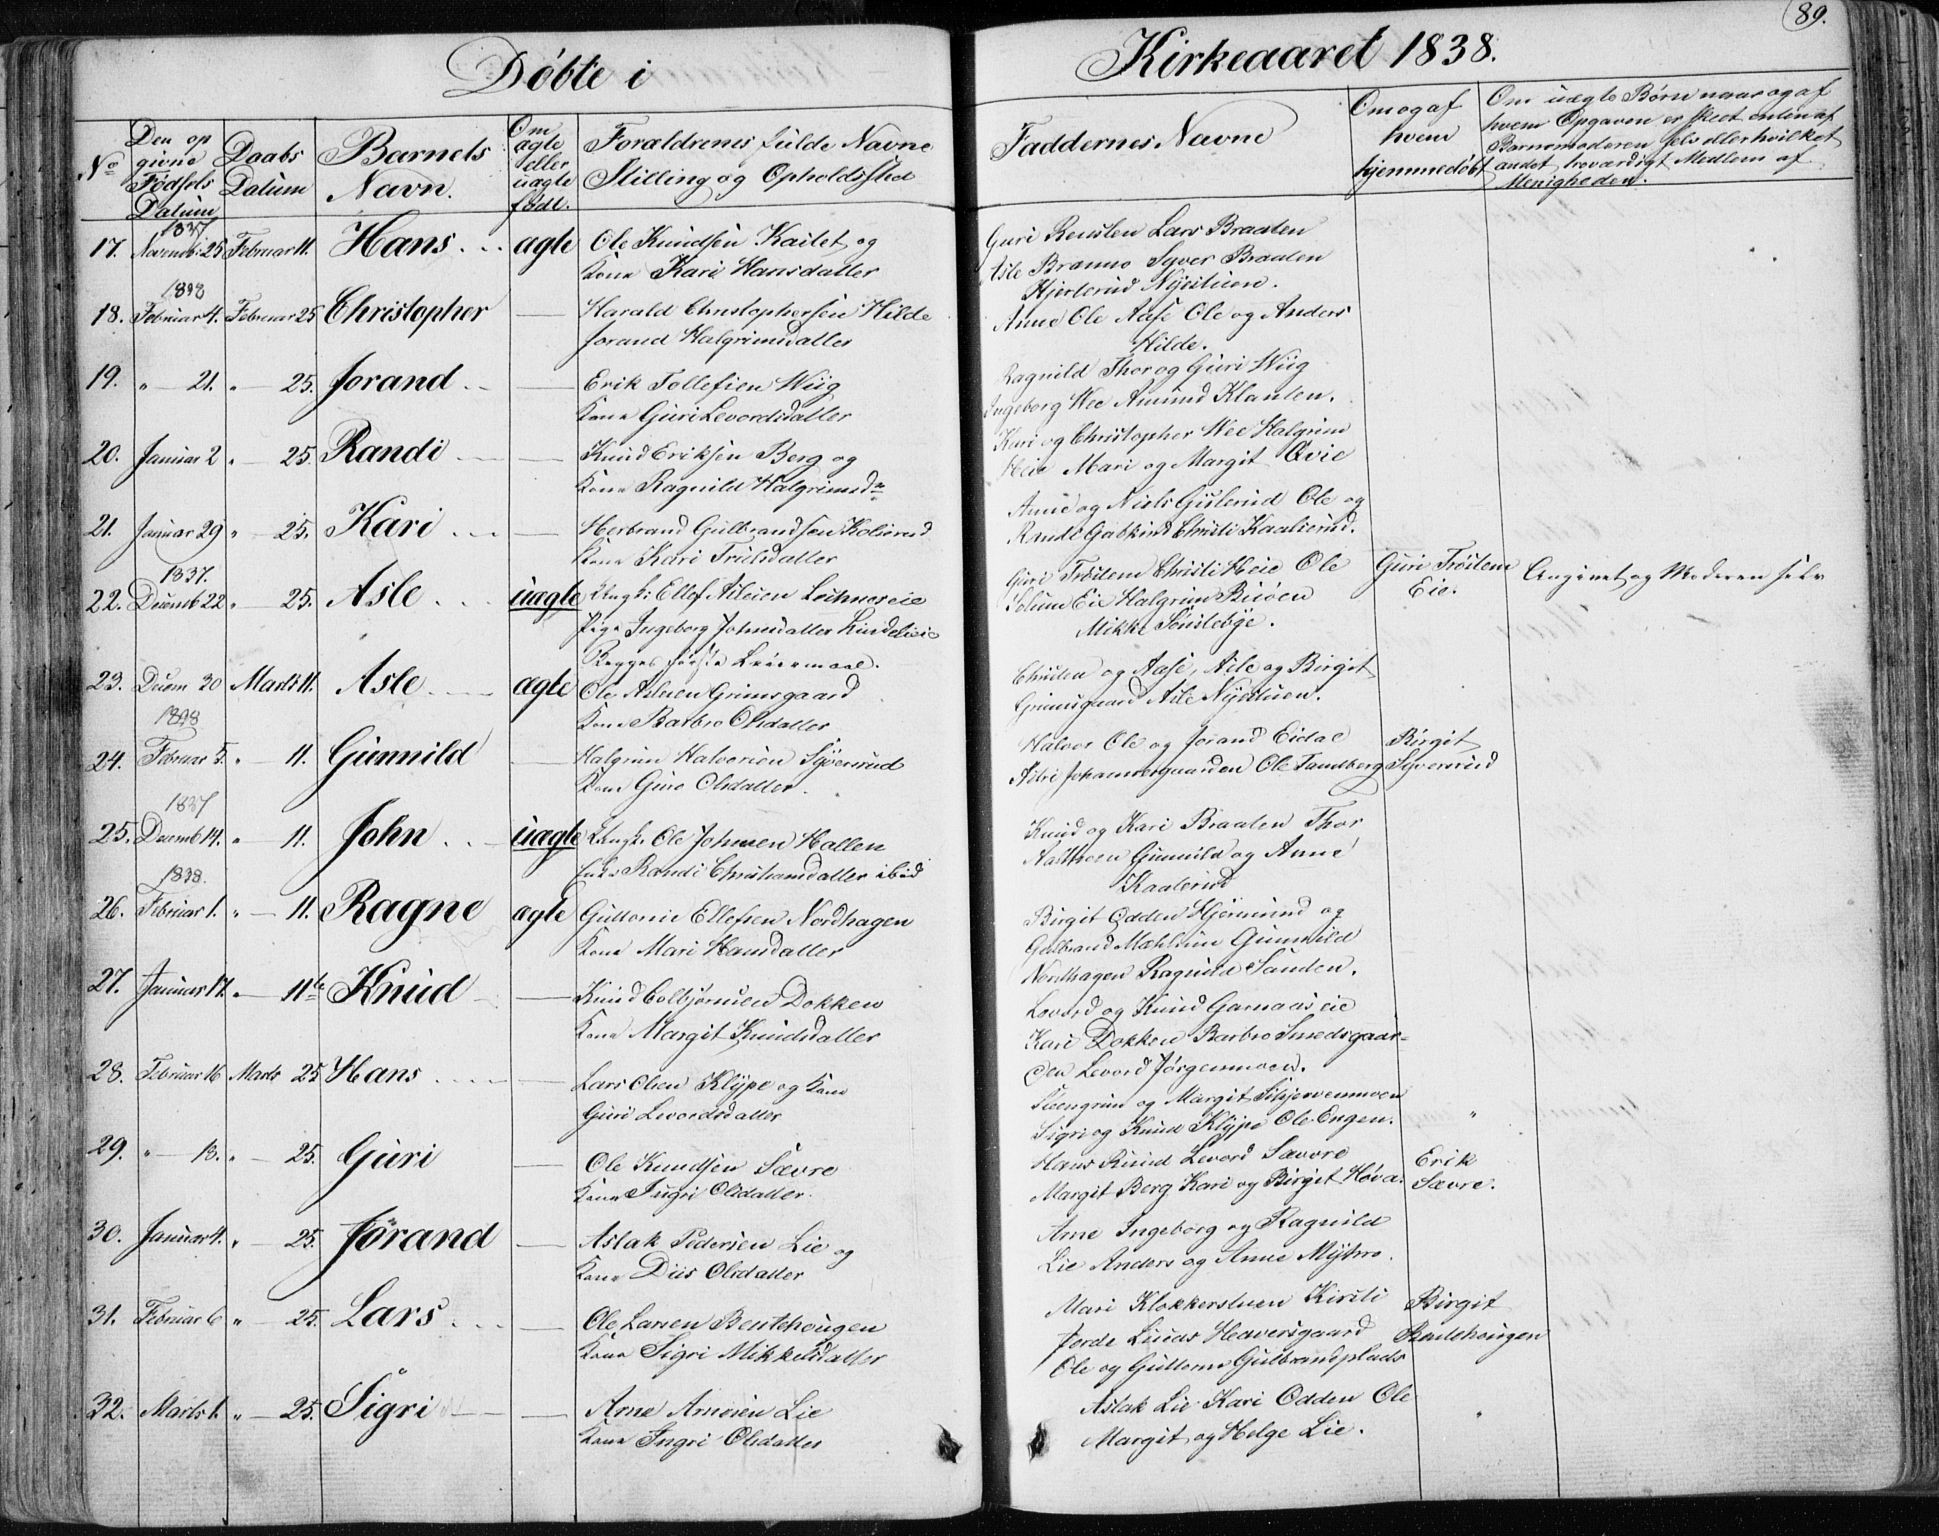 89.
Døbte i Kirkeaaret 1838.
No
Den op
givne
Fødsels
Datum
Daabs
Datum
Barnets
Navn.
Om
ægte
eller
uægte
født.
Forældrenes fulde Navne
Stilling og Opholdssted
Faddernes Navne
Om og af
hvem
hjemmedøbt
Om uægte Børn naar og af
hvem Opgaven er skeet enten af
Barnemoderen selv eller hvilket
andet troværdigt Medlem af
Menigheden.
1837
17. Novemb: 25 Februar 11. Hans ægte Ole Knudsen Kailet og
Kone Kari Hansdatter
Guri Lars Braaten
Asle Syver Braaten
Nystuen.
1838
18. Februar 4. Februar 25 Christopher — Harald Christophersen Hilde
Jorand Halgrimsdatter
Anne Ole Aase Ole og Anders
Hilde.
19. " — 21. " — 25. Jorand — Erik Tollefsen Wiig
Kone Guri Levordsdatter
Ragnild Thor og Guri Wiig
Ingeborg Wee Amund Klanten.
20. Januar 2 " — 25. Randi — Knud Eriksen Berg og
Kone Ragnild Halgrimsdr
Kari og Christopher Wee Halgrim
Mari og Margit Qvie
21. Januar 29 " — 25. Kari — Herbrand Gulbrandsen
Kone Kari Trulsdatter
Anne og Niels Ole og
Christi Kaalerud.
1837.
22. Decemb 22 " — 25. Asle uægte Ungk: Ellef Aslesen
Pige Ingeborg Johnsdatter
Begges første Leiermaal.
Guri Trøstem Christi Ole
Eie Halgrim
Mikkel
Guri Trøstem
Eie.
Angivet og Moderen selv
23. Decem 30 Marts 11. Asle ægte Ole Aslesen Grimsgaard
Kone Barbro Olsdatter
og Aase, Asle og Birgit
Grimsgaard Asle Nystuen.
1838
24. Februar 5. " — 11. Gunnild — Halgrim Halvorsen Syversrud
Kone Guro Olsdatter.
Halvor Ole og Jorand Eidal
Johannesgaarden Ole Sandberg
Birgit
Syversrud
1837
25. Decemb 14. " — 11. John uægte Ungk. Ole Johnsen Hallen
Randi Christiansdatter ibid
Knud og Kari Braaten Thor
Gunnild og Anne
Kaalerud
1838.
26. Februar 1. " — 11. Ragne ægte Guttorm Ellefsen Nordhagen
Kone Mari Hansdatter
Birgit Odden og
Gulbrand Gunnild
Nordhagen Ragnild Sanden.
27. Januar 17. " — 11te Knud — Knud Colbjørnsen Dokken
Kone Margit Knudsdatter
Levord og Knud Garnaas eie
Kari Dokken Barbro Smedsgaar-
den Levord Jørgenmoen.
28. Februar 16 Marts 25 Hans — Lars Olsen Klype og Kone
Guri Levordsdatter
Steengrim og Margit
Sigri og Knud Klype Ole Engen.
29. " — 13. " — 25. Guri — Ole Knudsen Sævre
Kone Ingri Olsdatter.
Hans Ruud Levord Sævre
Margit Berg Kari og Birgit Høva.
Erik
Sævre.
30. Januar 4. " — 25. Jørand — Aslak Pedersen Lie og
Kone Olsdatter
Arne Ingeborg og Ragnild
Lie Anders og Anne Myhro.
31. Februar 6 " — 25. Lars — Ole Larsen Bentehougen
Kone Sigri Mikkelsdatter
Mari Klokkerstuen Kirsti
Jorde Hesversgaard
Ole og Guttorm Gulbrandsplads
Birgit
Bentehougen
32. Marts 1. " — 25. Sigri — Arne Arnesen Lie
Kone Ingri Olsdatter
Aslak Lie Kari Odden Ole
Margit og Helge Lie.